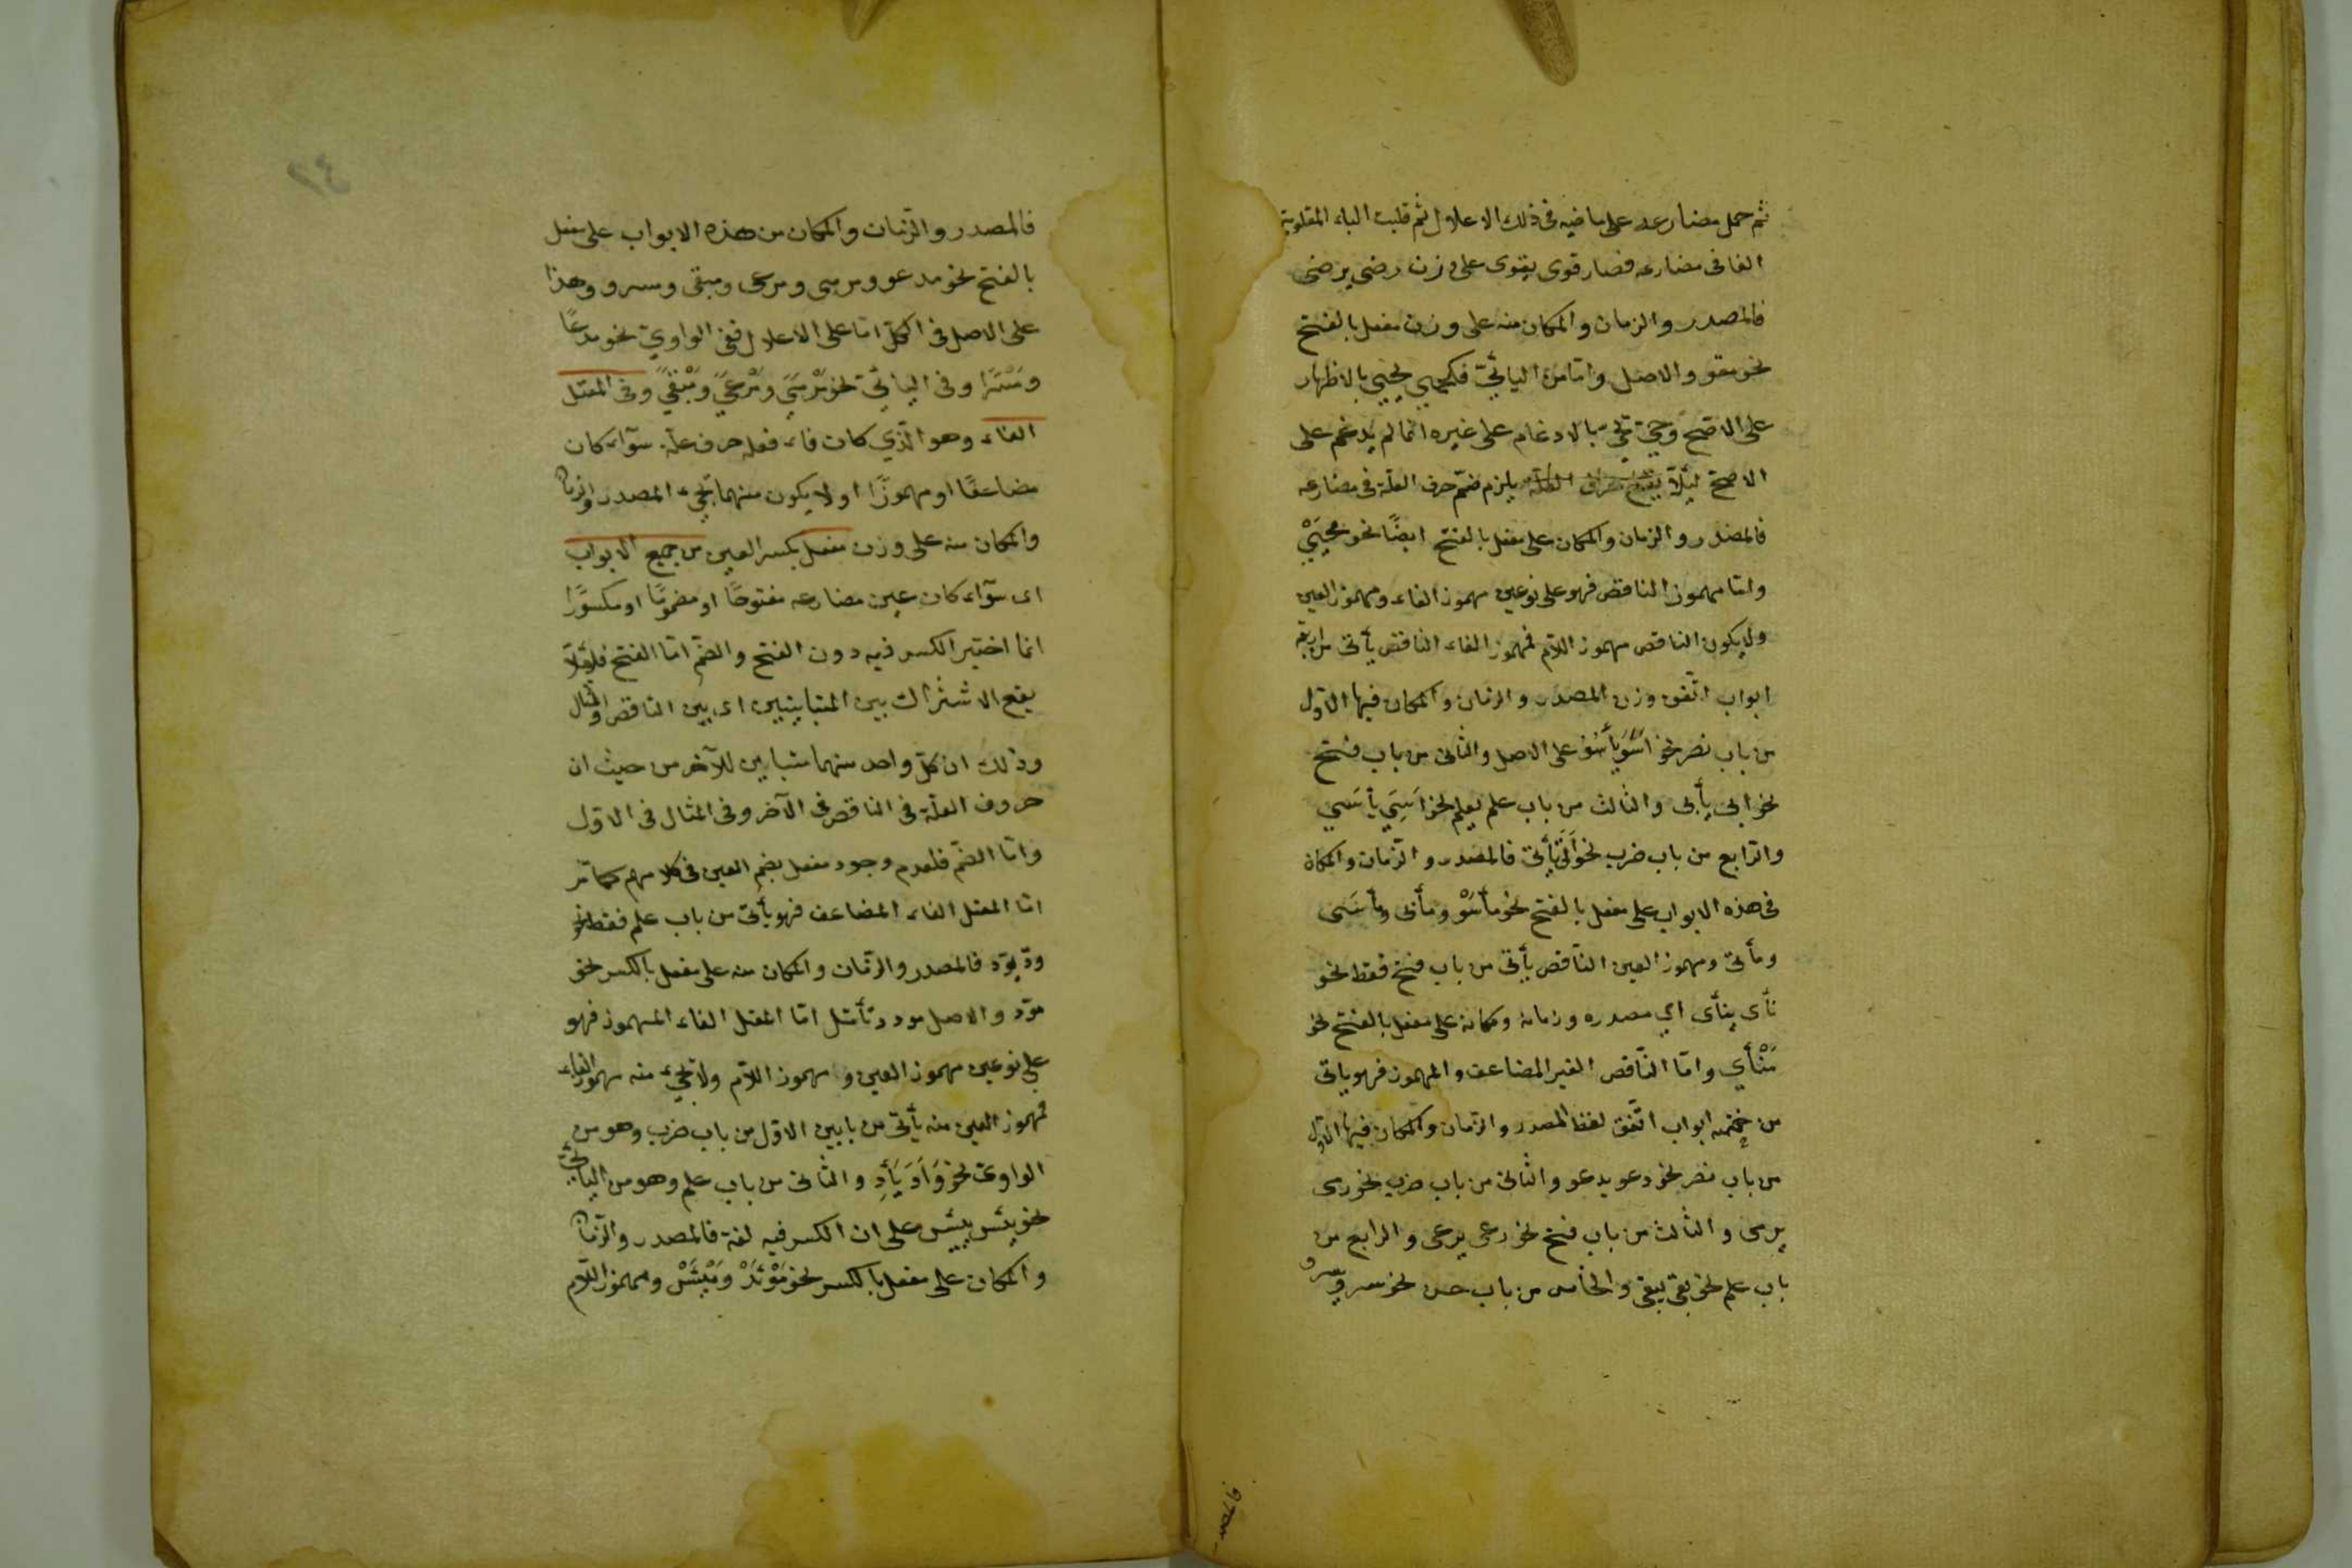 ثم حمل مضارعه على ماضيه فى ذلك الاعلال ثم قلبت الياء المقلوبة
الفا فى مضارعه فصار قوى يقوى على وزن رضى يرضى
فالمصدر والزمان والمكان منه على وزن مفعل بالفتح
نحو مقوو والاصل واما من اليائيّ فكحيي يحيي بالاظهار
على الاصح وحيّ بالادغام على غيره انما لم يدغم على
الاصح ليئلّا يلزم ضمّ حرف العلّة فى مضارعه
فالمصدر والزمان والمكان على مفعل بالفتح ايضًا نحو محيَيْ
وامّا مهموز الناقص فهو على نوعين مهموز الفاء ومهموز العين
ولا يكون الناقص مهموز اللام فمهموز الفاء الناقص يأتى من اربعة
ابواب اتّفق وزن المصدر والزمان والمكان فيها الاوّل
من باب نصر نحو اسَوَ يأسُو على الاصل والثانى من باب فتح
نحو ابى يأبى والثالث من باب علم يعلم نحو اَسِيَ يأسَي
والرّابع من باب ضرب نحو اَتَى يأتى فالمصدر والزّمان والمكان
فى هذه الابواب على مفعل بالفتح نحو مأسَوْ ومأبى ومأسَى
ومأتى ومهموز العين النّاقص يأتى من باب فتح فقط نحو
نأى ينأى اي مصدره وزمانه ومكانه على مفعل بالفتح نحو
مَنْأَي وامّا النّاقص الغير المضاعف والمهموز فهو ياتى
من خمسة ابواب اتّفق لفظ المصدر والزمان والمكان فيها الاوّل
من باب نصر نحو دعو يدعو والثانى من باب ضرب نحو رمى
يرمى والثالث من باب فتح نحو رعى يرعى والرابع من
باب علم نحو بقى يبقى والخامس من باب حسن نحو سرو يسرو
فالمصدر والزّمان والمكان من هذه الابواب على مفعل
بالفتح نحو مدعو ومرمى ومرعى ومبقى ومسرو وهذا
على الاصل فى الكلّ امّا على الاعلال ففى الواويّ نحو مدعًا
ومَسْرًا وفى اليائيّ نحو مَرْمَيً ومَرْعَيً ومَبْقَيً وفى المعتل
الفاء وهو الّذي كان فاء فعله حرف علّة سوآء كان
مضاعفًا او مهموزًا او لا يكون منهما يجيء المصدر والزمان
والمكان منه على وزن مفعل بكسر العين من جميع الابواب
اى سوآء كان عين مضارعه مفتوحًا او مضمومًا او مكسورًا
انما اختير الكسر فيه دون الفتح والضّم امّا الفتح فلئلّا
يقع الاشتراك بين المتباينين اى بين الناقص والمثال
وذلك ان كلّ واحد منهما متباين للآخر من حيث ان
حروف العلّة فى الناقص فى الآخر وفى المثال فى الاوّل
وامّا الضّم فلعدم وجود مفعل بضم العين فى كلامهم كما مّر
امّا المعتل الفاء المضاعف فهو يأتى من باب علم فقط نحو
ودّ يودّ فالمصدر والزّمان والمكان منه على مفعل بالكسر نحو
مودّ والاصل مودد تأمّل امّا المعتل الفاء المهموز فهو
على نوعين مهموز العين ومهموز اللّام ولا يجيء منه مهموز الفاء
فمهموز العين منه يأتى من بابين الاوّل من باب ضرب وهو من
الواوى نحو وَأَدَ يَأَدِ والثانى من باب علم وهو من اليائيّ
نحو يئس ييئس على ان الكسر فيه لغة فالمصدر والزّمان
والمكان على مفعل بالكسر نحو مَوْئَدْ ومَيْئَسْ ومهموز اللّام